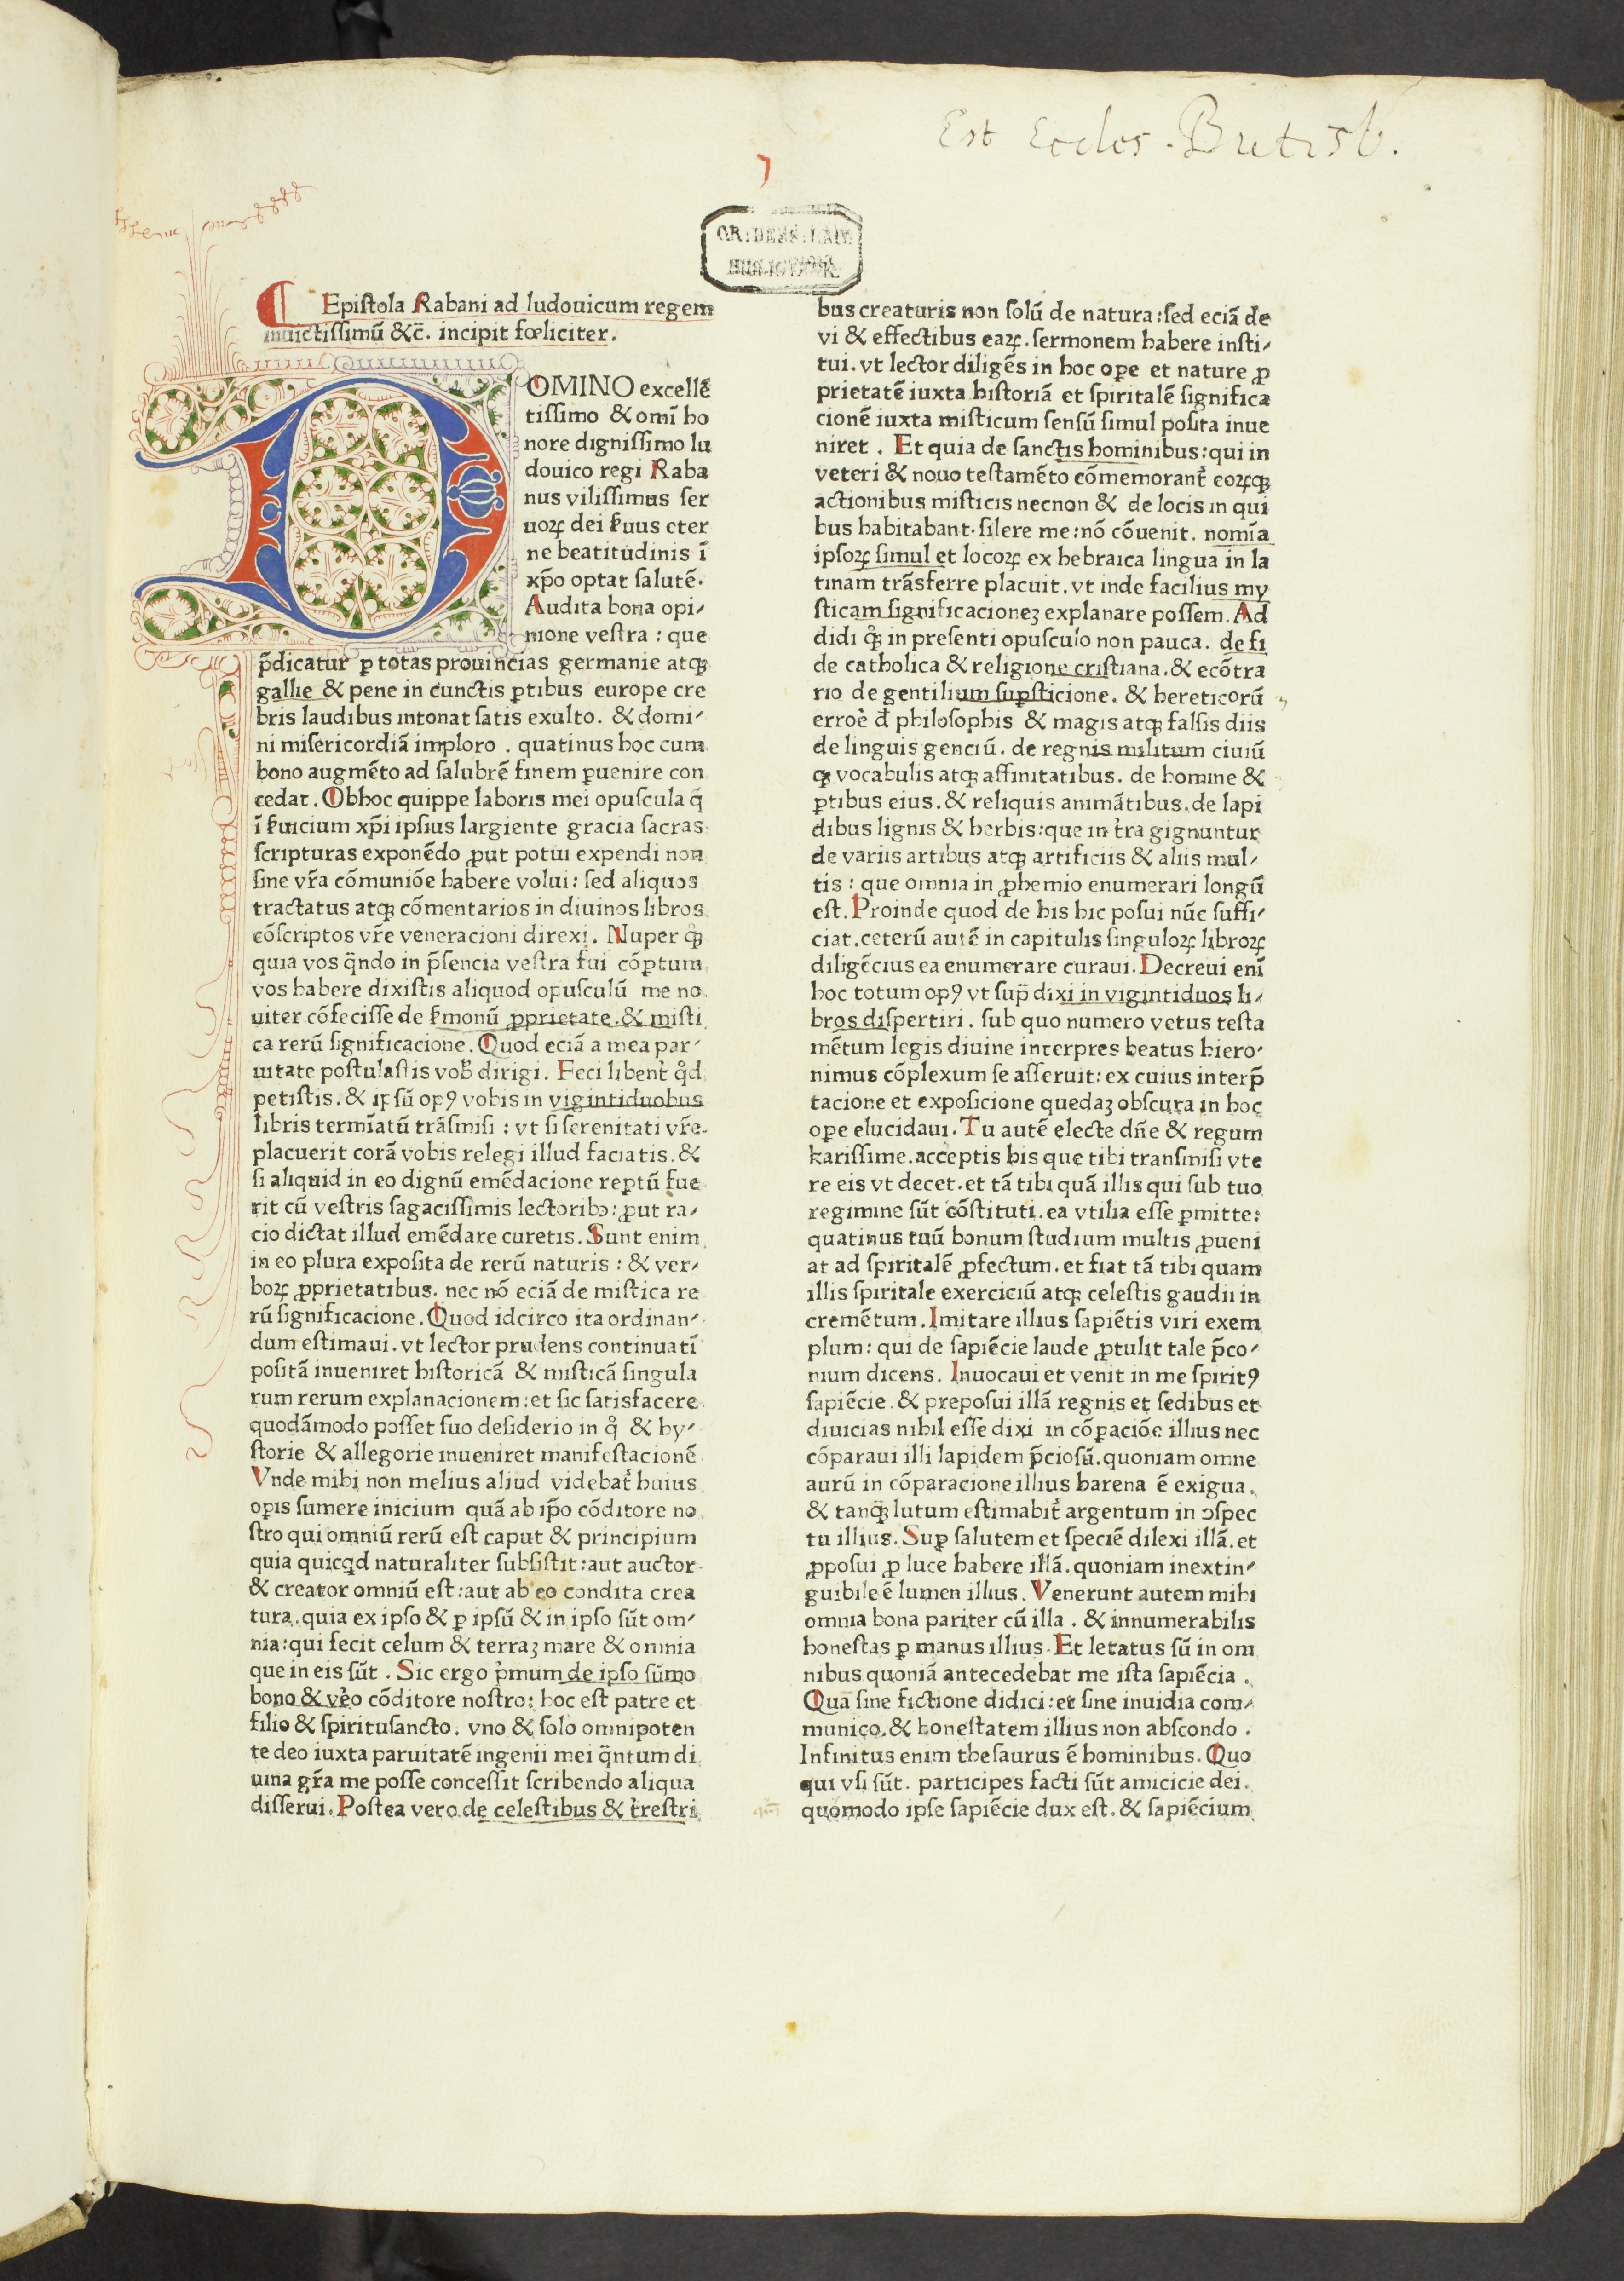 Est Eccles. Butisb.
¶ Epistola Rabani ad ludouicum regem
inuictissimū &c̄. incipit fœliciter.
DOMINO excellē
tissimo & omī ho
nore dignissimo lu
douico regi Raba
nus vilissimus ser
uoꝝ dei ẜuus eter
ne beatitudinis ī
xp̄o optat salutē.
Audita bona opi⸗
nione vestra : que
p̄dicatur ꝑ totas prouincias germanie atqꝫ
gallie & pene in cunctis ꝑtibus europe cre
bris laudibus intonat satis exulto. & domi⸗
ni misericordiā imploro . quatinus hoc cum
bono augmēto ad salubrē finem ꝑuenire con
cedat. Obhoc quippe laboris mei opuscula q̄
ī ẜuicium xp̄i ipsius largiente gracia sacras
scripturas exponēdo ꝓut potui expendi non
sine vr̄a cōmuniōe habere volui: sed aliquos
tractatus atqꝫ cōmentarios in diuinos libros
cōscriptos vr̄e veneracioni direxi. Nuper qꝫ̄
quia vos q̄ndo in p̄sencia vestra fui cōꝑtum
vos habere dixistis aliquod opusculū me no
uiter cōfecisse de ẜmonū ꝓprietate. & misti
ca rerū significacione. Quod eciā a mea par⸗
uitate postulastis vob̄ dirigi. Feci libent̄ qd̊
petistis. & ipsū opꝰ vobis in vigintiduobus
libris termīatū trāsmisi : vt si serenitati vr̄e
placuerit corā vobis relegi illud faciatis. &
si aliquid in eo dignū emēdacione reꝑtū fue
rit cū vestris sagacissimis lectoribꝰ: ꝓut ra⸗
cio dictat illud emēdare curetis. Sunt enim
in eo plura exposita de rerū naturis : & ver⸗
boꝝ ꝓprietatibus. nec nō eciā de mistica re
rū significacione. Quod idcirco ita ordinan⸗
dum estimaui. vt lector prudens continuatī
positā inueniret historicā & misticā singula
rum rerum explanacionem: et sic satisfacere
quodāmodo posset suo desiderio in q̊ & hy⸗
storie & allegorie inueniret manifestacionē
Vnde mihi non melius aliud videbat̄ huius
opis sumere inicium quā ab ip̄o cōditore no
stro qui omniū rerū est caput & principium
quia quicqd naturaliter subsistit: aut auctor
& creator omniū est: aut ab eo condita crea
tura. quia ex ipso & ꝑ ipsū & in ipso sūt om⸗
nia: qui fecit celum & terraꝫ mare & omnia
que in eis sūt . Sic ergo pͥmum de ipso sūmo
bono & vēo cōditore nostro: hoc est patre et
filio & spiritusancto. vno & solo omnipoten
te deo iuxta paruitatē ingenii mei q̄ntum di
uina gr̄a me posse concessit scribendo aliqua
disserui. Postea vero de celestibus & tr̄estri
bus creaturis non solū de natura: sed eciā de
vi & effectibus eaꝝ. sermonem habere insti⸗
tui. vt lector diligēs in hoc oꝑe et nature ꝓ
prietatē iuxta historiā et spiritalē significa
cionē iuxta misticum sensū simul posita inue
niret . Et quia de sanctis hominibus: qui in
veteri & nouo testamēto cōmemorant̄ eoꝝqꝫ
actionibus misticis necnon & de locis in qui
bus habitabant. silere me: nō cōuenit. nomīa
ipsoꝝ simul et locoꝝ ex hebraica lingua in la
tinam trāsferre placuit. vt inde facilius my
sticam significacioneꝫ explanare possem. Ad
didi qꝫ̄ in presenti opusculo non pauca. de fi
de catholica & religione cristiana. & ecōtra
rio de gentilium suꝑsticione. & hereticorū
erroē d̄ philosophis & magis atqꝫ falsis diis
de linguis genciū. de regnis militum ciuiū
qꝫ vocabulis atqꝫ affinitatibus. de homine &
ꝑtibus eius. & reliquis animātibus. de lapi
dibus lignis & herbis: que in tr̄a gignuntur
de variis artibus atqꝫ artificiis & aliis mul⸗
tis : que omnia in ꝓhemio enumerari longū
est. Proinde quod de his hic posui nūc suffi⸗
ciat. ceterū autē in capitulis singuloꝝ libroꝝ
diligēcius ea enumerare curaui. Decreui enī
hoc totum opꝰ vt sup̄ dixi in vigintiduos li⸗
bros dispertiri. sub quo numero vetus testa
mētum legis diuine interpres beatus hiero⸗
nimus cōplexum se asseruit: ex cuius interp̄
tacione et exposicione quedaꝫ obscura in hoc
oꝑe elucidaui. Tu autē electe dn̄e & regum
karissime. acceptis his que tibi transmisi vte
re eis vt decet. et tā tibi quā illis qui sub tuo
regimine sūt cōstituti. ea vtilia esse ꝑmitte:
quatinus tuū bonum studium multis ꝓueni
at ad spiritalē ꝓfectum. et fiat tā tibi quam
illis spiritale exerciciū atqꝫ celestis gaudii in
cremētum. Imitare illius sapiētis viri exem
plum: qui de sapiēcie laude ꝓtulit tale p̄co⸗
nium dicens. Inuocaui et venit in me spiritꝰ
sapiēcie. & preposui illā regnis et sedibus et
diuicias nihil esse dixi in cōꝑaciōe illius nec
cōparaui illi lapidem p̄ciosū. quoniam omne
aurū in cōparacione illius harena ē exigua.
& tanqꝫ̄ lutum estimabit̄ argentum in ↄspec
tu illius. Suꝑ salutem et speciē dilexi illā. et
ꝓposui ꝓ luce habere illā. quoniam inextin⸗
guibile ē lumen illius. Venerunt autem mihi
omnia bona pariter cū illa . & innumerabilis
honestas ꝑ manus illius. Et letatus sū in om
nibus quoniā antecedebat me ista sapiēcia .
Quā sine fictione didici: et sine inuidia com⸗
munico. & honestatem illius non abscondo .
Infinitus enim thesaurus ē hominibus. Quo
qui vsi sūt. participes facti sūt amicicie dei.
quomodo ipse sapiēcie dux est. & sapiēcium